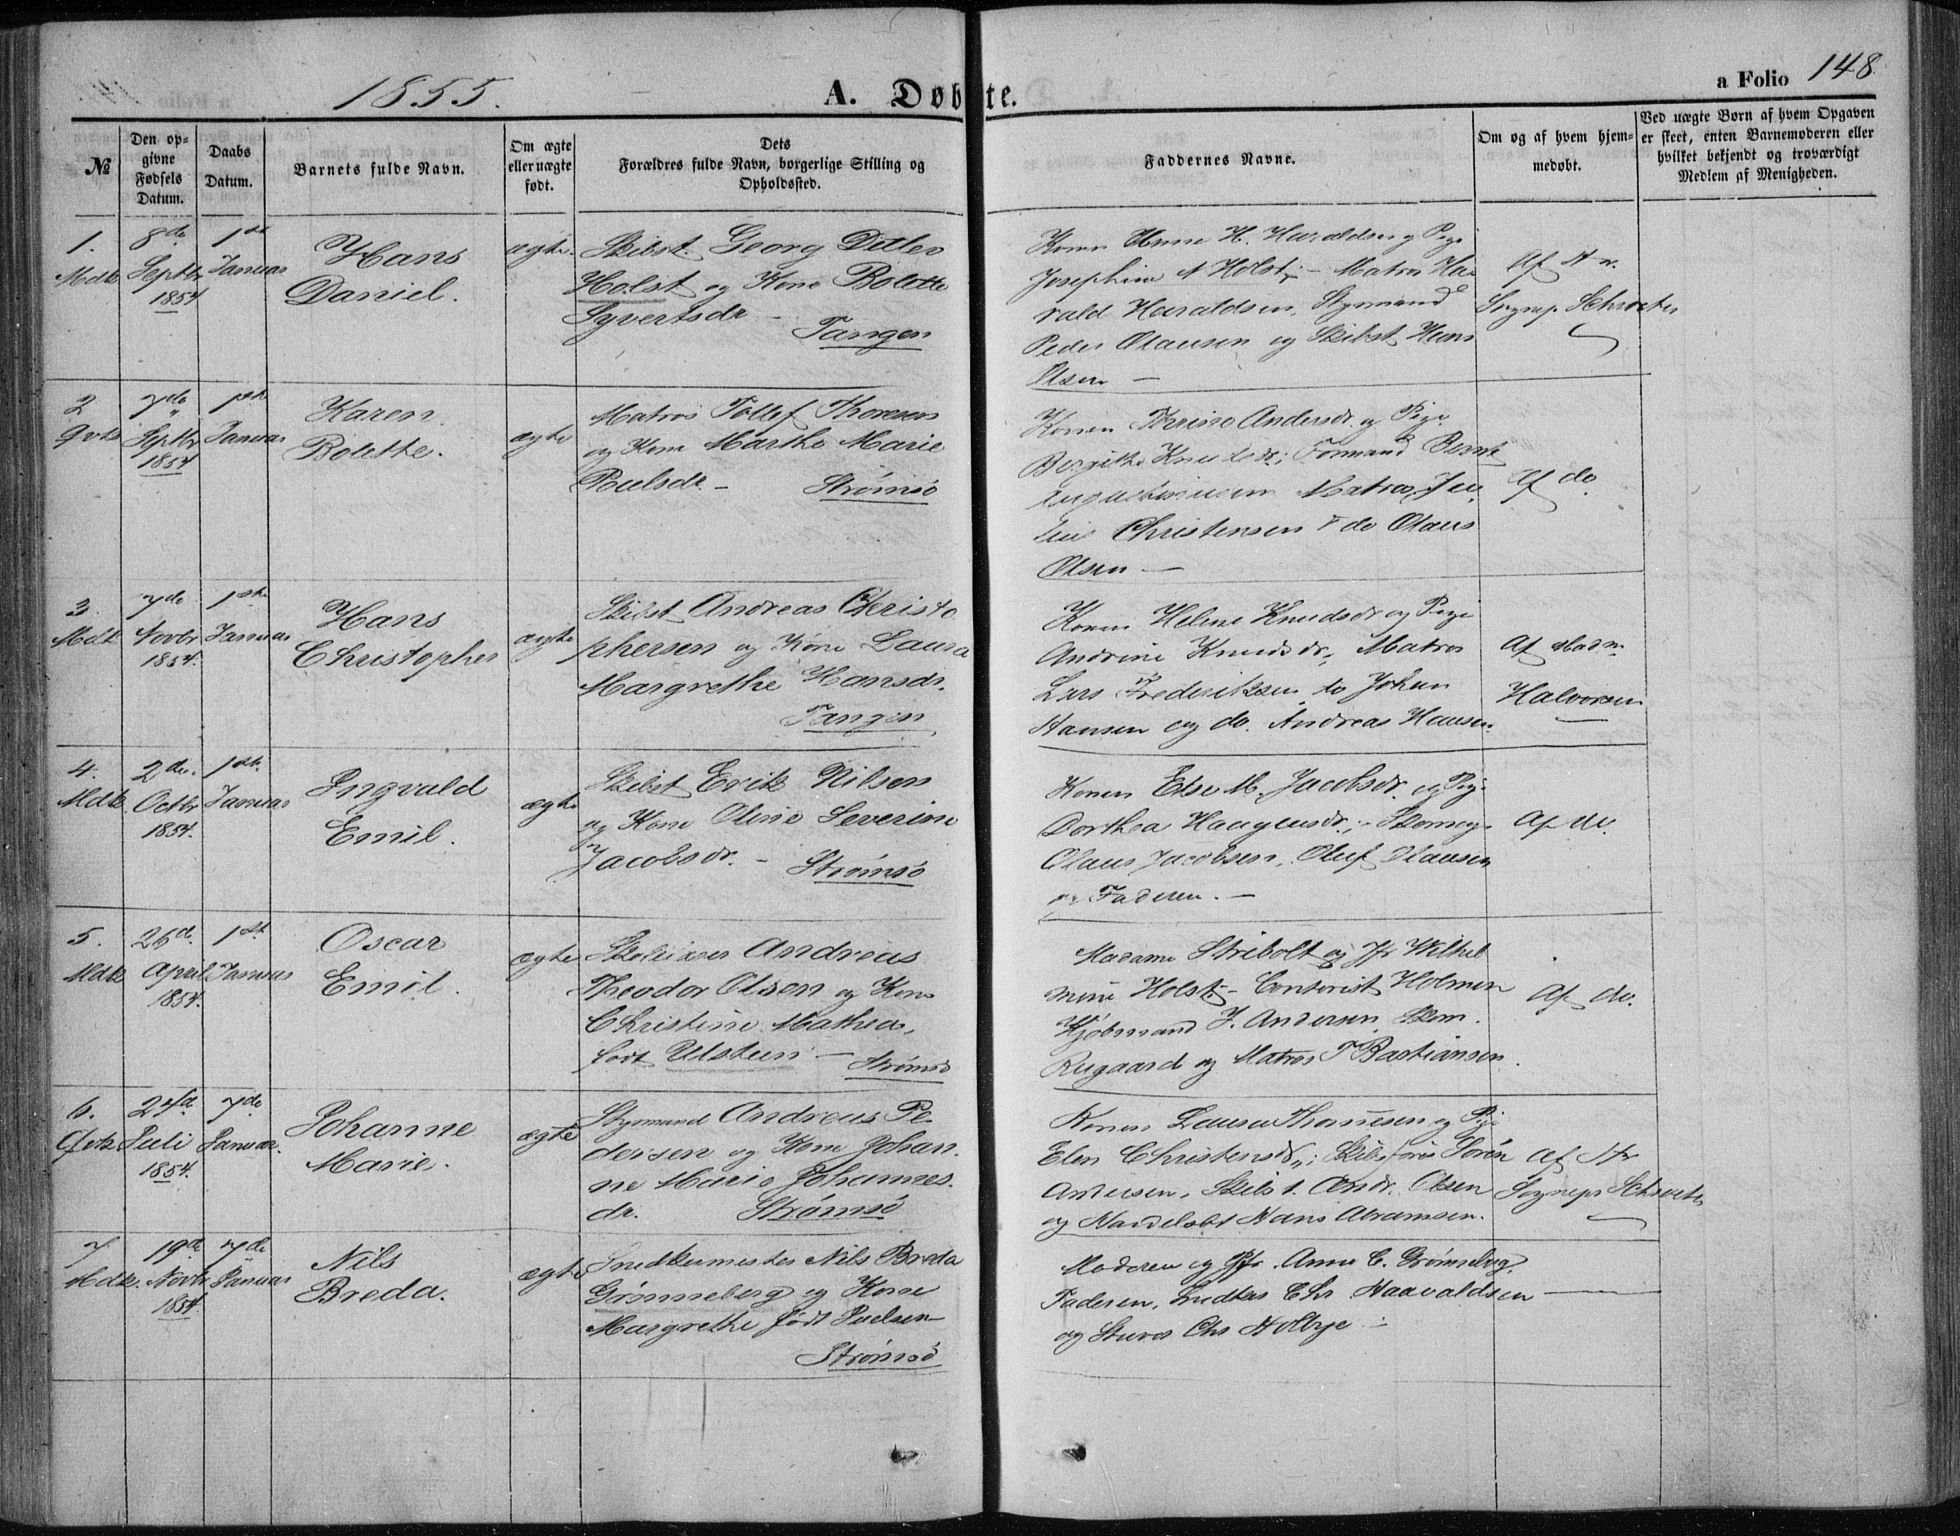 1855.
A. Døbte.
a Folio 148.
№
Den opgivne Fødsels Datum.
Daabs Datum.
Barnets fulde Navn.
Om ægte eller uægte født.
Dets Forældres fulde Navn, borgerlige Stilling og Opholdssted.
Faddernes Navne.
Om og af hvem hjemmedøbt.
Ved uægte Børn af hvem Opgaven er skeet, enten Barnemoderen eller hvilket bekjendt og troværdigt Medlem af Menigheden.
1. Mdk.
8de Septbr 1854
1ste Januar
Hans
Daniel.
ægte.
Skibst. Georg Ditlev
Holst og Kone Bolette
Syvertsdr –
Tangen
Konen Anne H. Haraldsen og Pige
Josephine N Holst; – Matros Ha
rald Haraldsen, Styrmand
Peder Olausen og Skibst Hans
Olsen –
Af Hr.
Sognep Schroeter
2
7de Septbr 1854
1ste Januar
Karen
Bolette.
ægte
Matros Tollef Thoresen
og Kone Marthe Marie
Poulsdr. –
Strømsø
Konen Andersdr. og Pige
Bergithe Knudsdr; Formand Bernt
Augustinusen Matros Ju
lius Christensen & do Olaus
Olsen –
Af do.
3. Mdk
7de Novbr 1854.
1ste Januar
Hans
Christopher
ægte
Skibst Andreas Christo
phersen og Kone Laura
Margrethe Hansdr.
Tangen
Konen Helene Knudsdr og Pige
Andrine Knudsdr; Matros
Lars Frederiksen, do Johan
Hansen og do. Andreas Hansen.
Af Madm
Halvorsen
4. Mdk.
2den Octbr 1854.
1ste Januar
Ingvald
Emil.
ægte
Skibst Erik Nilsen
og Kone Oline Severine
Jacobsdr. –
Strømsø
Konen Else M. Jacobsdr. og Pige
Dorthea Haagensdr.; –
Olaus Jacobsen, Oluf Olausen
og Faderen. –
Af do.
5. Mdk
26de April 1854.
1ste Januar
Oscar
Emil.
ægte
Andreas
Theodor Olsen og Kone
Christine Mathea,
født Ulsteen –
Strømsø
Madame Stribolt og Jfr Wilhel
mine Holst; – Contorist Holmen
Kjøbmand J. Andersen,
Rugaard og Matros T Bastiansen.
Af do.
6.
Juli 1854.
7de Januar.
Johanne
Marie.
ægte
Styrmand Andreas Pe
dersen og Kone Johan
ne Marie Johannes
dr.
Strømsø
Konen Laura Thoresen og Pige
Elen Christensdr.; Skibsfører Søren
Andersen, Skibst. Andr. Olsen
og Handelsbt Hans Abramsen.
Af Hr
Sognepr Schroeter
7 Mdk.
19de Novbr 1854
7de Januar
Nils
Breda.
ægte
Snedkermester Nils Breda
Grønneberg og Kone
Margrethe født Poulsen
Strømsø
Moderen og Jfr. Anne C. Grønneberg,
Faderen, Snedker Chr Haavaldsen
og Stuver Chr Holbye –